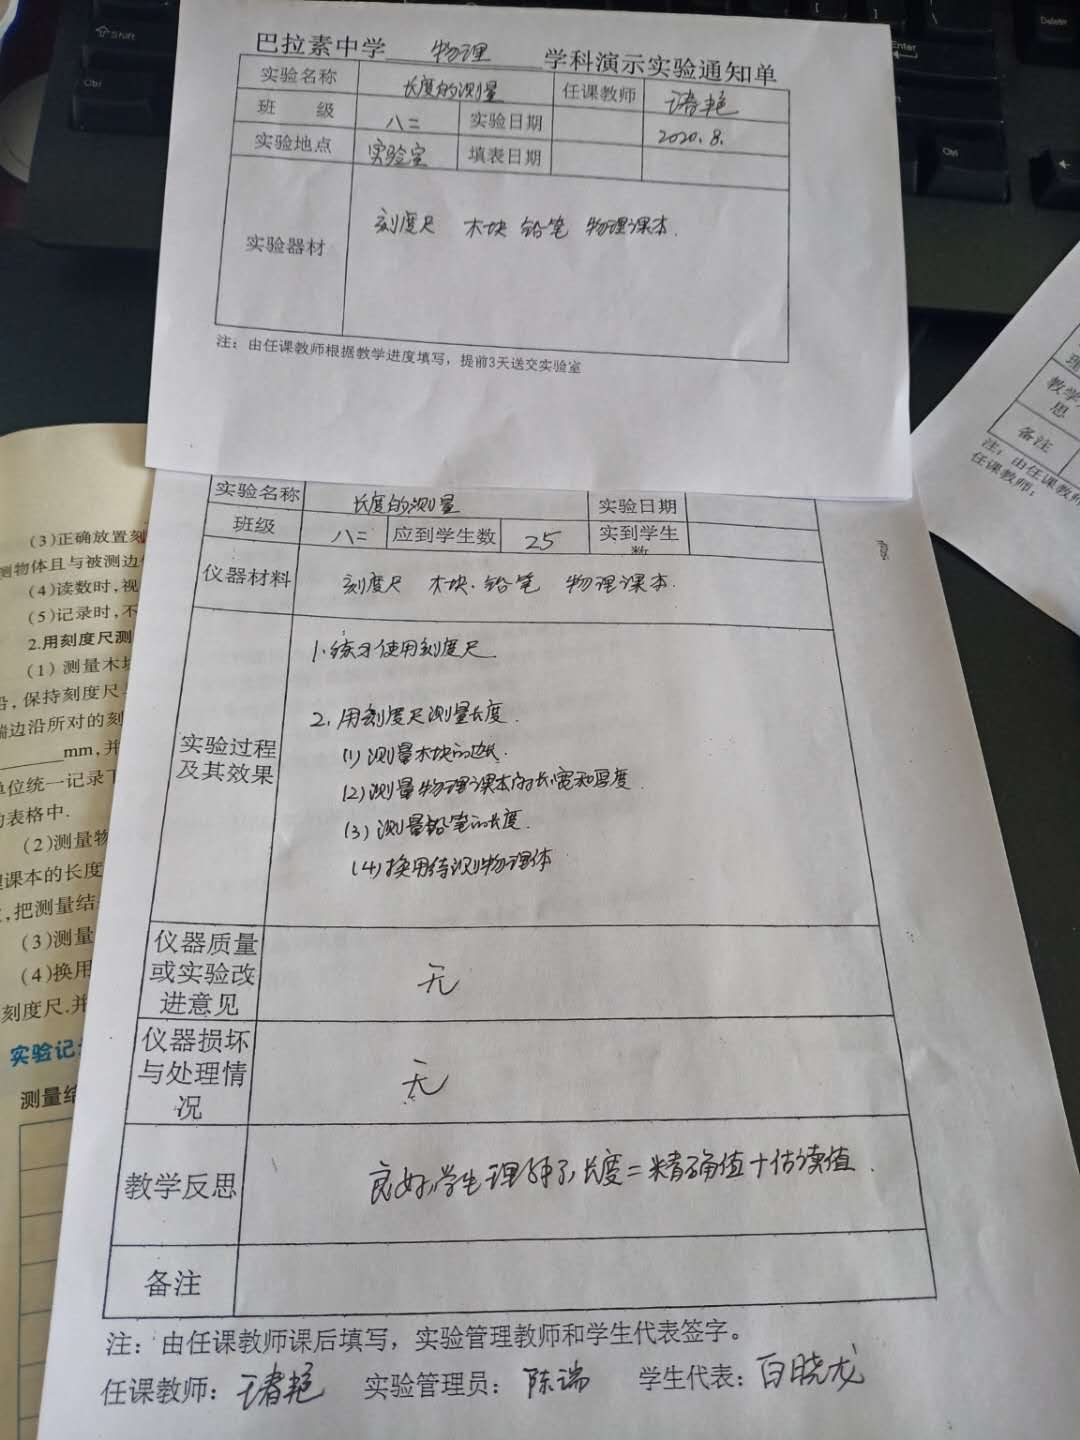 Shift
Ctrl
Enter
Delete
Ctrl
巴拉素中学 物理 学科演示实验通知单
实验名称 长度的测量 任课教师
班 级 八二 实验日期 2020.8.
实验地点 实验室 填表日期
实验器材 刻度尺 木块 铅笔 物理课本.
注：由任课教师根据教学进度填写，提前3天送交实验室
实验名称 长度的测量 实验日期
班级 八二 应到学生数 25 实到学生数
仪器材料 刻度尺 木块.铅笔 物理课本.
实验过程及其效果
1.练习使用刻度尺
2.用刻度尺测量长度.
(1)测量木块的边长.
(2)测量物理课本的长宽和厚度.
(3)测量铅笔的长度.
(4)换用待测物理体
仪器质量
或实验改
进意见
无
仪器损坏
与处理情
况
无
教学反思 良好,学生理解了,长度=精确值+估读值.
备注
注：由任课教师课后填写，实验管理教师和学生代表签字。
任课教师： 实验管理员：陈瑞 学生代表：白晓龙
(3)正确放置刻
测物体且与被测边
(4)读数时,视
(5)记录时,不
2.用刻度尺测
(1)测量木块
沿,保持刻度尺
端边沿所对的刻
mm,并
单位统一记录下
的表格中.
(2)测量物
理课本的长度
,把测量结
(3)测量
(4)换用
刻度尺.并
实验记
测量结
理
教学
思
备注
注：由任课教师
任课教师：